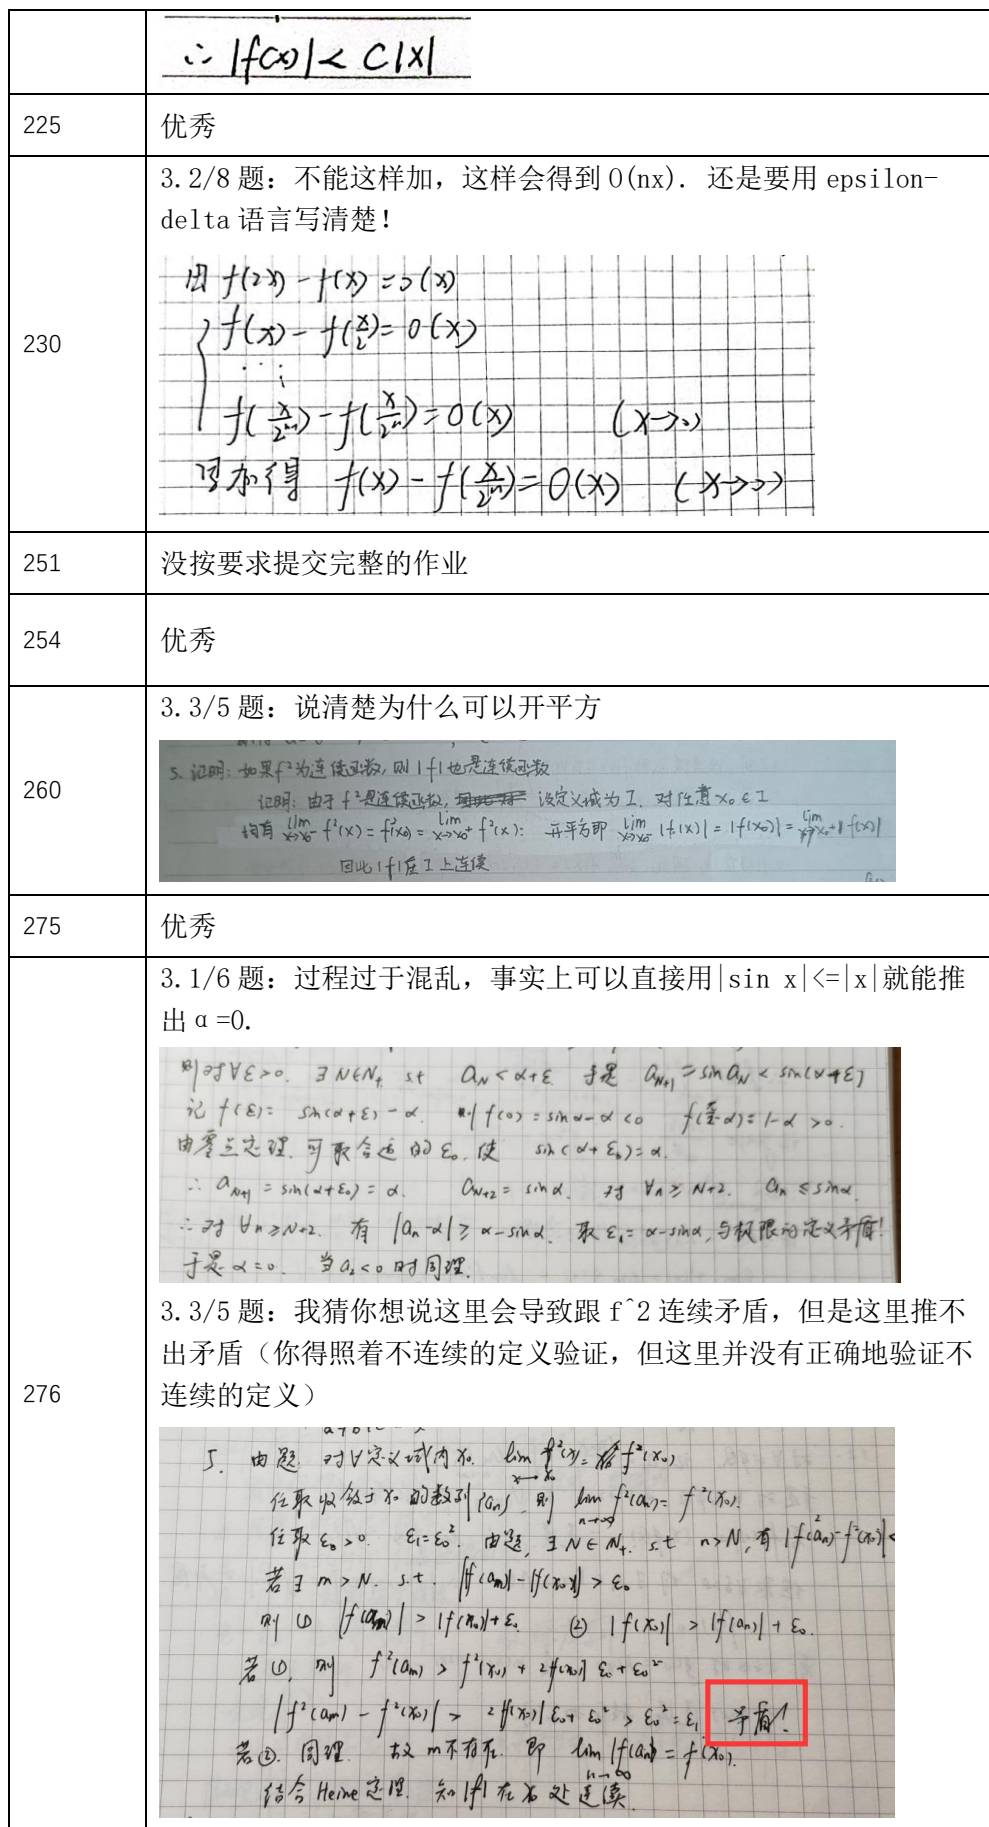 ∴ |f(x)| < C|x|
225
优秀
3.2/8 题：不能这样加，这样会得到 O(nx). 还是要用 epsilon-
delta 语言写清楚！
230
因 f(2x) - f(x) = o(x)
f(x) - f(x/2) = o(x)
⋮
f(x/2ⁿ⁻¹) - f(x/2ⁿ) = o(x) (x→0)
得 f(x) - f(x/2ⁿ) = o(x) (x→0)
251
没按要求提交完整的作业
254
优秀
3.3/5 题：说清楚为什么可以开平方
260
5. 证明：如果f²为连续函数, 则|f|也是连续函数
证明：由于f²是连续函数, 设定义域为I. 对任意x₀∈I
均有 lim x→x₀⁻ f²(x) = f²(x₀) = lim x→x₀⁺ f²(x); 开平方即 lim x→x₀⁻ |f(x)| = |f(x₀)| = lim x→x₀⁺ |f(x)|
因此|f|在I上连续
275
优秀
3.1/6 题：过程过于混乱，事实上可以直接用|sin x|<=|x|就能推
出α=0.
则对∀ε>0. ∃N∈N₊ s.t a_N<α+ε. 于是 a_{N+1}=sin a_N < sin(α+ε)
记 f(ε)= sin(α+ε)-α. 则 f(0)=sinα-α<0 f(π/2-α)=1-α>0.
由零点定理. 可取合适的ε₀, 使 sin(α+ε₀)=α.
∴ a_{N+1} = sin(α+ε₀) = α. a_{N+2} = sinα. 对 ∀n≥N+2. a_n ≤ sinα.
∴对 ∀n≥N+2. 有 |a_n-α| ≥ α-sinα. 取 ε₁=α-sinα, 与极限的定义矛盾!
于是 α=0. 当a₂<0时同理.
3.3/5 题：我猜你想说这里会导致跟 f^2 连续矛盾，但是这里推不
出矛盾（你得照着不连续的定义验证，但这里并没有正确地验证不
连续的定义）
276
5. 由题 对∀定义域内x₀. lim x→x₀ f²(x) = f²(x₀)
任取收敛于x₀的数列{a_n}, 则 lim n→∞ f²(a_n) = f²(x₀).
任取ε₀>0. ε₁=ε₀². 由题, ∃N∈N₊. s.t n>N, 有 |f²(a_n)-f²(x₀)|<
若∃m>N. s.t. ||f(a_m)|-|f(x₀)|| > ε₀
则 ① |f(a_m)| > |f(x₀)|+ε₀ ② |f(x₀)| > |f(a_n)|+ε₀.
若①, 则 f²(a_m) > f²(x₀) + 2|f(x₀)|ε₀ + ε₀²
|f²(a_m) - f²(x₀)| > 2|f(x₀)|ε₀+ε₀² > ε₀² = ε₁ 矛盾!
若②. 同理. 故m不存在. 即 lim n→∞ |f(a_n)| = f(x₀).
结合Heine定理. 知|f|在x₀处连续.